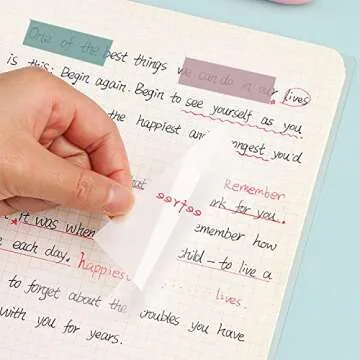 One of the best things we can do in our lives
is this: Begin again. Begin to see yourself as you
the happiest and ongest you'd
hat Remember
ark for you.
it was when emember how
e each day. happies child – to live a
lives.
to forget about the troubles you have
with you for years.